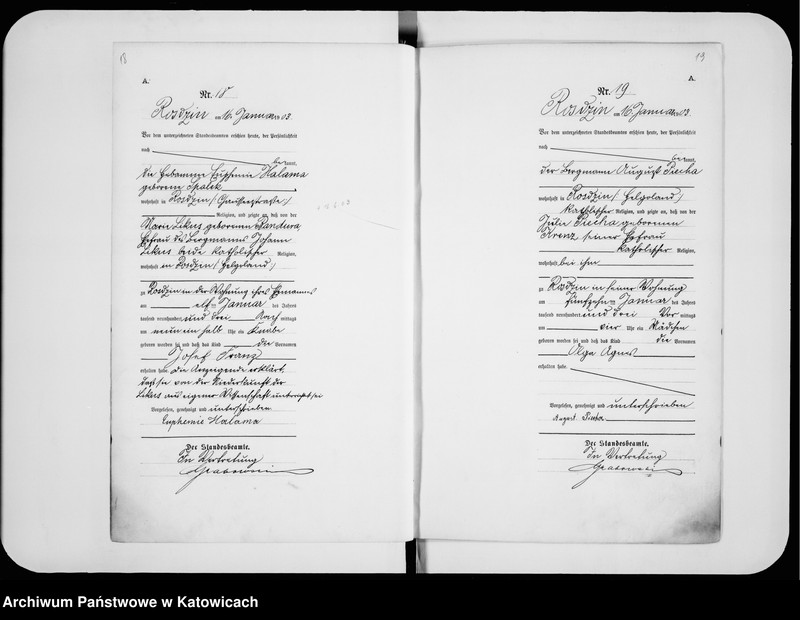 18
A.
Nr. 18
Rosdzin am 16. Januar 1903.
Vor dem unterzeichneten Standesbeamten erschien heute, der Persönlichkeit
nach
bekannt,
die Hebamme Euphemie Halama
geborene Spalek
wohnhaft in Rosdzin
Religion, und zeigte an, daß von der
Marie Likus geborenen Pandura,
Ehefrau des Bergmanns Johann
Likus beide katholischer Religion,
wohnhaft in Rosdzin (Helgoland)
zu Rosdzin in der Wohnung ihres Ehemannes
am elften Januar des Jahres
tausend neunhundert und drei Nachmittags
um neun ein halb Uhr ein Knabe
geboren worden sei und daß das Kind die Vornamen
Josef Franz
erhalten habe. Die Anzeigende erklärt,
daß sie von der Niederkunft der
Likus aus eigener Wissenschaft unterrichtet sei
Vorgelesen, genehmigt und unterschrieben
Euphemie Halama
Der Standesbeamte.
In Vertretung
19
A.
Nr. 19
Rosdzin am 16. Januar 1903.
Vor dem unterzeichneten Standesbeamten erschien heute, der Persönlichkeit
nach
bekannt,
der Bergmann August Piecha
wohnhaft in Rosdzin (Helgoland)
katholischer Religion, und zeigte an, daß von der
Julie Piecha geborenen
Krenz seiner Ehefrau
katholischer Religion,
wohnhaft bei ihm
zu Rosdzin in seiner Wohnung
am fünfzehnten Januar des Jahres
tausend neunhundert und drei Vor mittags
um vier Uhr ein Mädchen
geboren worden sei und daß das Kind die Vornamen
Olga Agnes
erhalten habe.
Vorgelesen, genehmigt und unterschrieben
August Piecha
Der Standesbeamte.
In Vertretung
Archiwum Państwowe w Katowicach